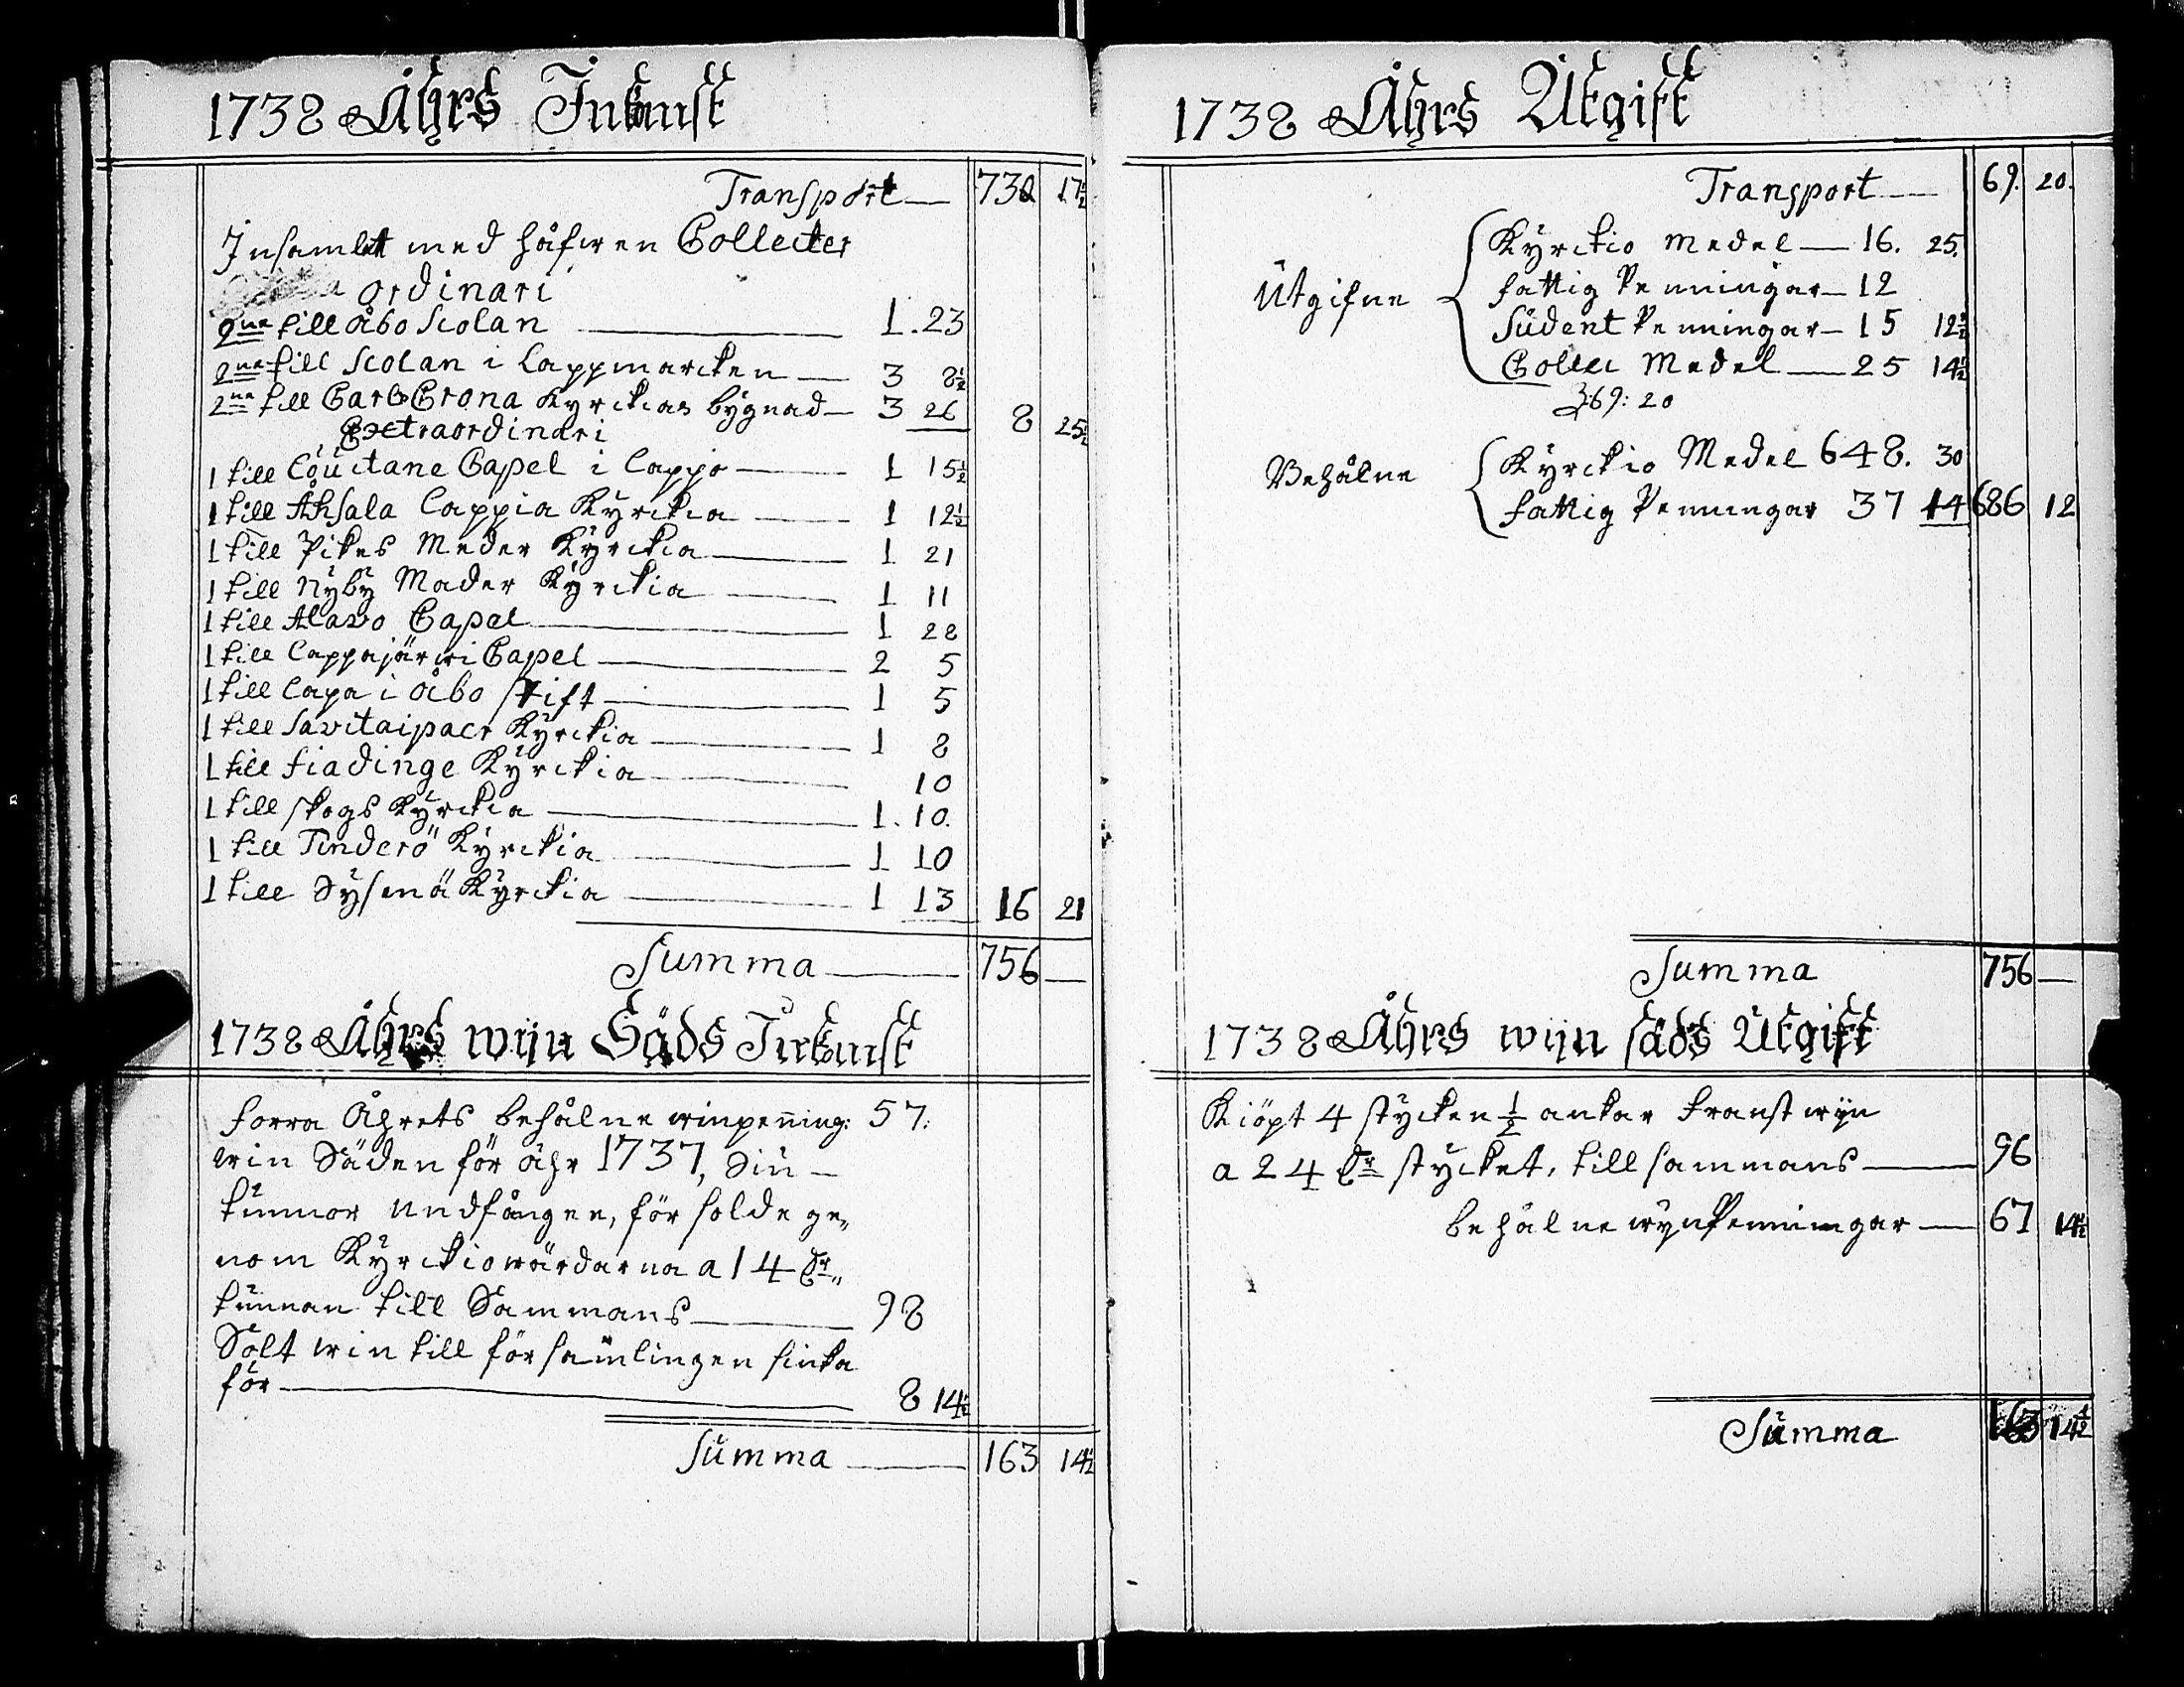 1738 Åhrs Inkomst
Transport — 730 17½
Insamlat med håfwen Collecter
ordinari
2ne till Åbo Scolan — 1. 23
2ne till Scolan i Lappmarcken — 3 8½
2ne till Carls Crona Kyrckias bygnad — 3 26 8 25½
Extraordinari
1 till Capel i Lappo — 1 15½
1 till Lappia Kyrckia — 1 12½
1 till Pikes Meder Kyrckia — 1 21
1 till Nyby Mader Kyrckia — 1 11
1 till Alavo Capel — 1 28
1 till Lappajärwi Capel — 2 5
1 till Lapa i Åbo stift — 1 5
1 till Savitaipacs Kyrckia — 1 8
1 till fiadinge Kyrckia — 10
1 till skogs Kyrckia — 1. 10.
1 till Tinderö Kyrckia — 1 10
1 till Sysmä Kyrckia — 1 13 16 21
Summa — 756 —
1738 Åhrs wijn Säds Inkomst
forra Åhrets behålne winpening: 57:
win Säden för åhr 1737, Siu
tunnor undfången, försolde ge„
nom Kyrckiowärdarna a 14 Dr„
tunnan till Sammans — 98
Solt win till församlingen sinka
för — 8 14½
Summa — 163 14½
1738 Åhrs Utgift
Transport — 69. 20.
Utgifne
Kyrckio Medel — 16. 25.
fattig Penningar — 12
Student Penningar — 15 12½
Collec Medel — 25 14½
69: 20
Behålne
Kyrckio Medel 648. 30
fattig Penningar 37 14 686 12
Summa 756 —
1738 Åhrs wijn säds Utgift
Kiöpt 4 stycken ½ ankar franst wijn
a 24 Dr stycket, till sammans — 96
behålne wijn Penningar — 67 14½
Summa 163 14½